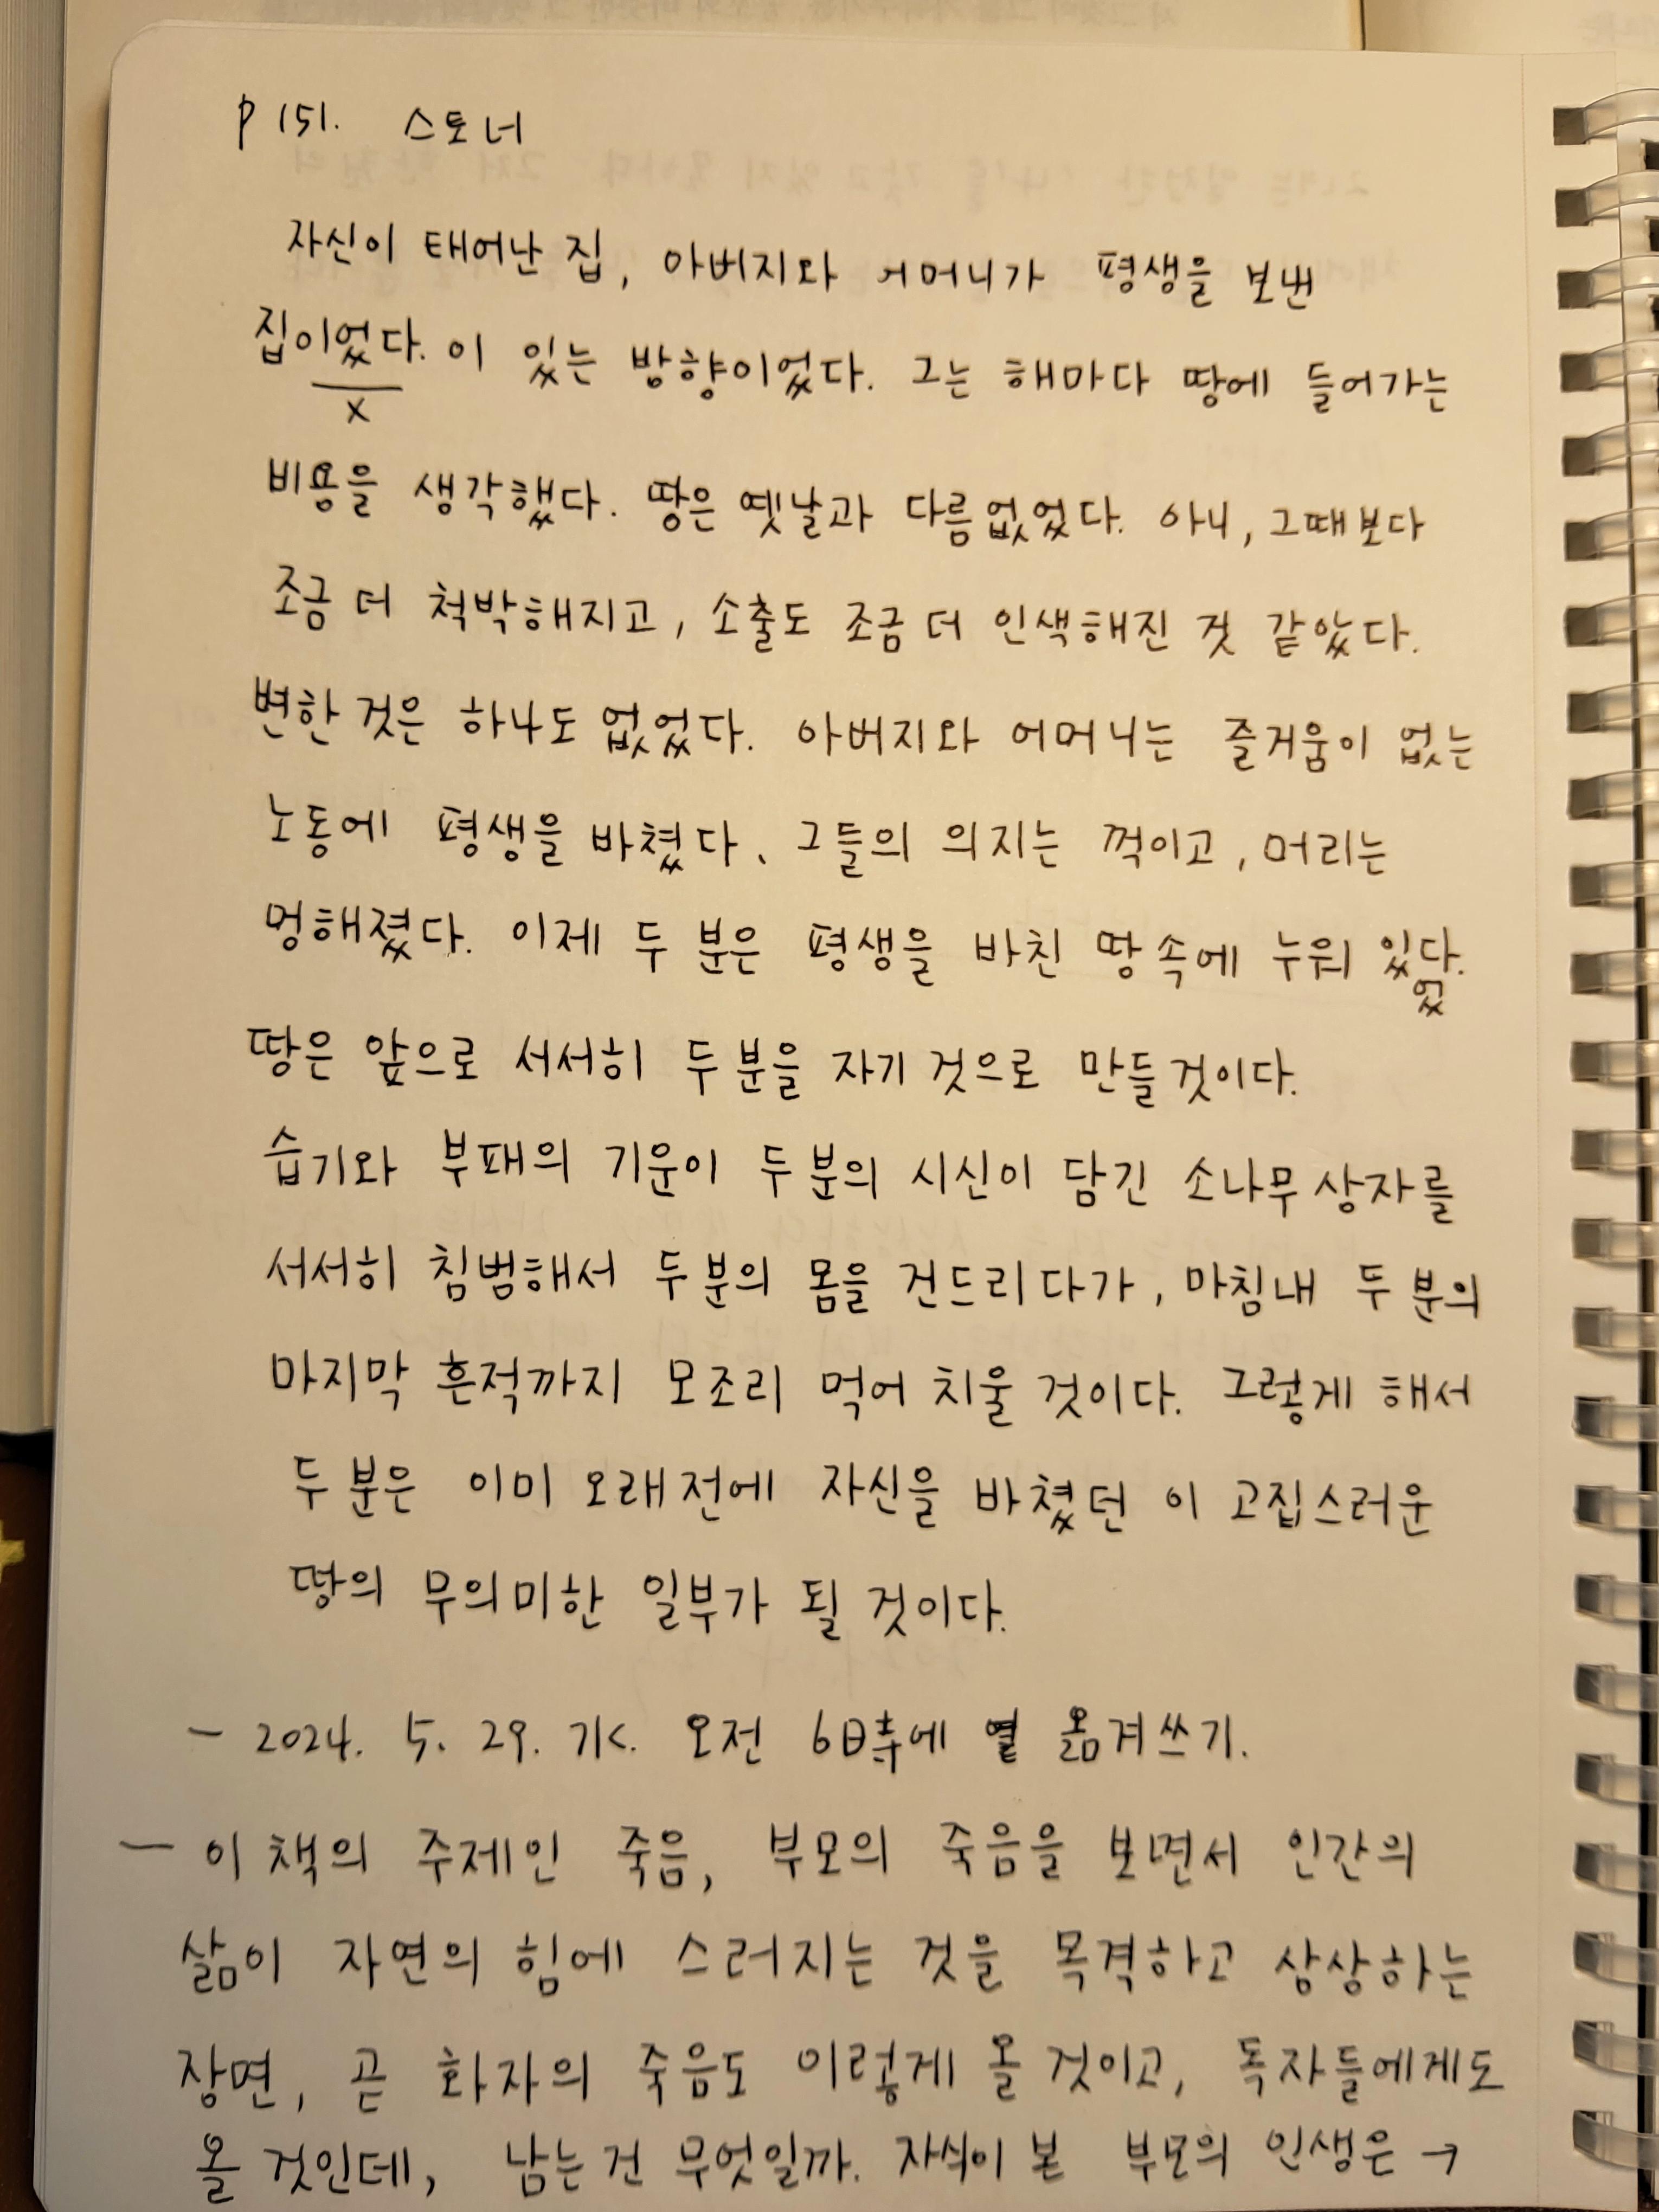 p 151. 스토너
자신이 태어난 집, 아버지와 어머니가 평생을 보낸
집이었다. 이 있는 방향이었다. 그는 해마다 땅에 들어가는
x
비용을 생각했다. 땅은 옛날과 다름없었다. 아니, 그때보다
조금 더 척박해지고, 소출도 조금 더 인색해진 것 같았다.
변한 것은 하나도 없었다. 아버지와 어머니는 즐거움이 없는
노동에 평생을 바쳤다. 그들의 의지는 꺽이고, 머리는
멍해졌다. 이제 두 분은 평생을 바친 땅 속에 누워 있다.
었
땅은 앞으로 서서히 두 분을 자기 것으로 만들것이다.
습기와 부패의 기운이 두 분의 시신이 담긴 소나무 상자를
서서히 침범해서 두 분의 몸을 건드리다가, 마침내 두 분의
마지막 흔적까지 모조리 먹어 치울 것이다. 그렇게 해서
두 분은 이미 오래전에 자신을 바쳤던 이 고집스러운
땅의 무의미한 일부가 될 것이다.
- 2024. 5. 29. 水. 오전 6時에 옮겨쓰기.
- 이 책의 주제인 죽음, 부모의 죽음을 보면서 인간의
삶이 자연의 힘에 스러지는 것을 목격하고 상상하는
장면, 곧 화자의 죽음도 이렇게 올 것이고, 독자들에게도
올 것인데, 남는건 무엇일까. 자식이 본 부모의 인생은 →